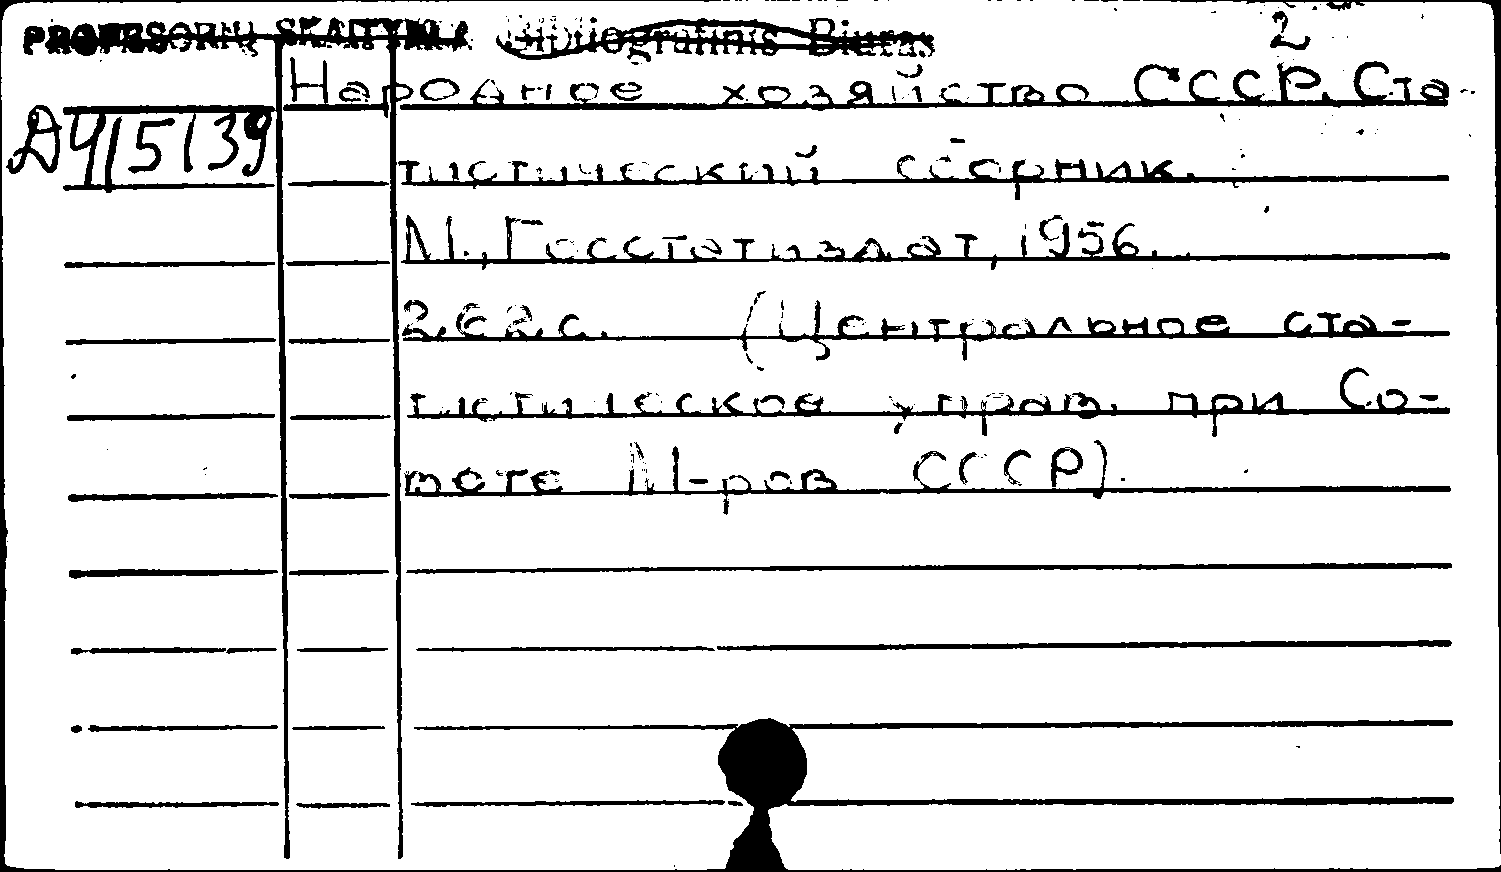 PROFESORIŲ SKAITYKLA Bibliografinis Biuras
2
Народное хозяйство СССР. Ста-
Д4/5139
тистический сборник.
М., Госстатиздат, 1956.
262 с. (Центральное ста-
тистическое управ. при Со-
вете М-ров СССР).